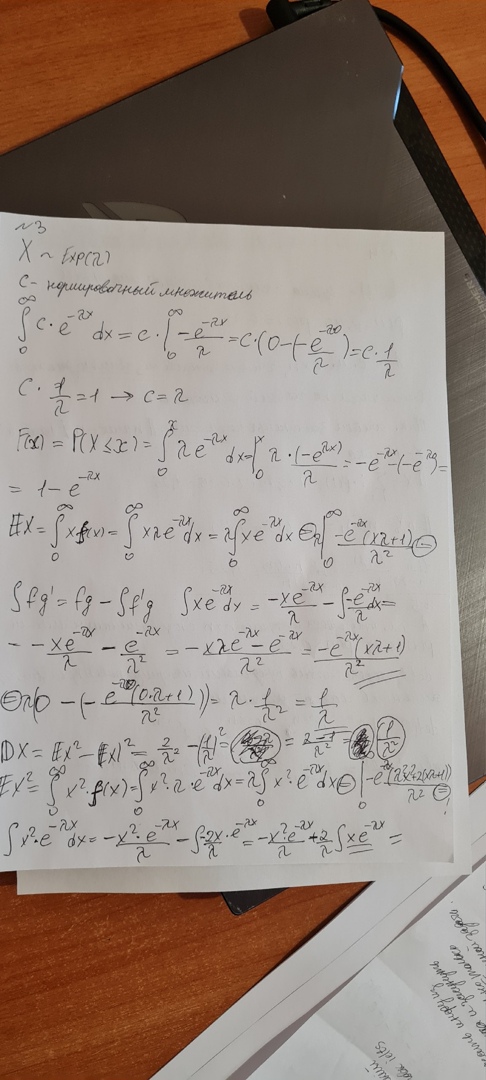 №3
X ~ Exp(λ)
C - нормировочный множитель
∫₀^∞ C·e^{-λx} dx = C·|₀^∞ -e^{-λx}/λ = C·(0-(-e^{-λ0}/λ)) = C·1/λ
C·1/λ = 1 → C = λ
F(x) = P(X ≤ x) = ∫₀^x λe^{-λx} dx = |₀^x λ·(-e^{-λx})/λ = -e^{-λx}-(-e^{-λ0}) =
= 1 - e^{-λx}
EX = ∫₀^∞ x f(x) = ∫₀^∞ xλe^{-λx}dx = λ∫₀^∞ xe^{-λx}dx ⊖ λ|₀^∞ -e^{-λx}(xλ+1)/λ² ⊖
∫fg' = fg - ∫f'g ∫xe^{-λx}dx = -xe^{-λx}/λ - ∫-e^{-λx}/λ dx =
= -xe^{-λx}/λ - e^{-λx}/λ² = -xλe^{-λx} - e^{-λx}/λ² = -e^{-λx}(xλ+1)/λ²
⊖ λ(0 - (-e^{-λ0}(0·λ+1)/λ²)) = λ·1/λ² = 1/λ
DX = EX² - (EX)² = 2/λ² - (1/λ)² = = 2-1/λ² = 1/λ²
EX² = ∫₀^∞ x²·f(x) = ∫₀^∞ x²·λ·e^{-λx}dx = λ∫₀^∞ x²·e^{-λx}dx ⊖ |₀^∞ -e^{-λx}(λ²x²+2(λx+1))/λ² ⊖
∫x²·e^{-λx}dx = -x²·e^{-λx}/λ - ∫-2x·e^{-λx}/λ = -x²e^{-λx}/λ + 2/λ ∫xe^{-λx} =